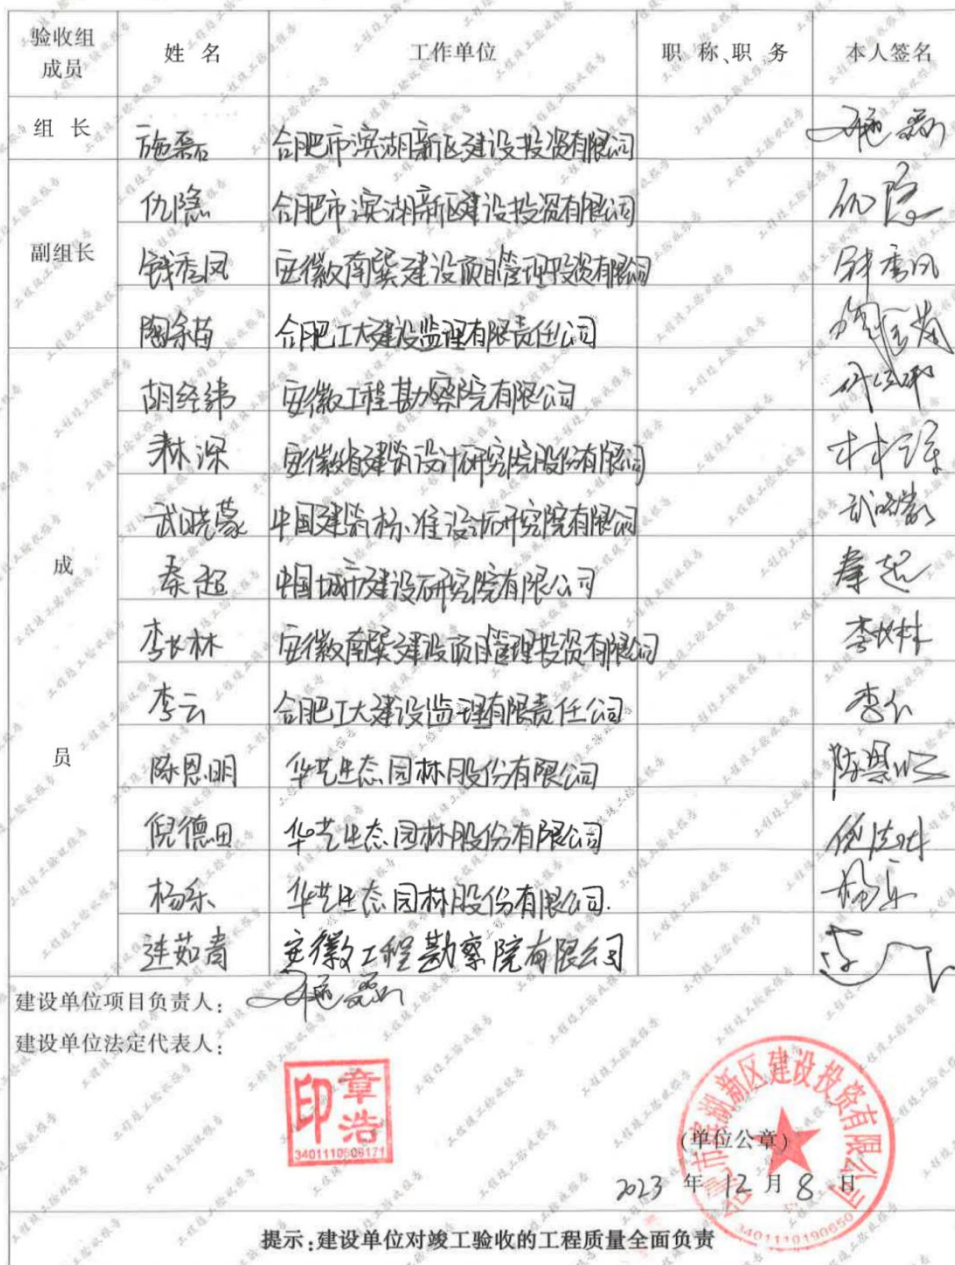 验收组成员 姓名 工作单位 职称、职务 本人签名
组长 施磊 合肥市滨湖新区建设投资有限公司 施磊
副组长 仇隐 合肥市滨湖新区建设投资有限公司 仇隐
钱秀凤 安徽南巽建设项目管理投资有限公司 钱秀凤
陶余苗 合肥工大建设监理有限责任公司
成员 胡经纬 安徽工程勘察院有限公司
林深 安徽省建筑设计研究院股份有限公司
武晓蒙 中国建筑标准设计研究院有限公司 武晓蒙
秦超 中国城市建设研究院有限公司 秦超
李长林 安徽南巽建设项目管理投资有限公司 李长林
李云 合肥工大建设监理有限责任公司 李云
陈恩明 华艺生态园林股份有限公司 陈恩明
倪德田 华艺生态园林股份有限公司
杨乐 华艺生态园林股份有限公司. 杨乐
连茹青 安徽工程勘察院有限公司
建设单位项目负责人: 施磊
建设单位法定代表人:
章浩印
合肥市滨湖新区建设投资有限公司
(单位公章)
2023年12月8日
3401110190650
提示:建设单位对竣工验收的工程质量全面负责
工程竣工验收报告